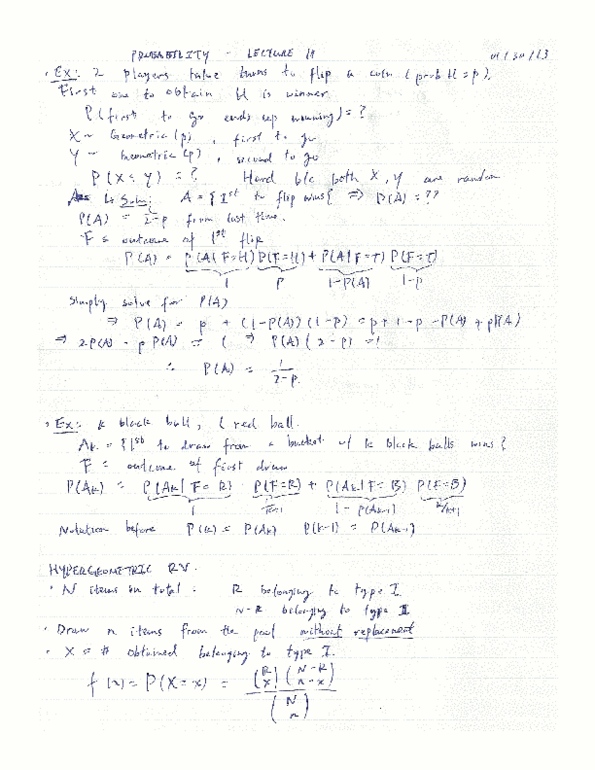 PROBABILITY - LECTURE 11
· Ex: 2 players take turns to flip a coin (prob H = p).
First one to obtain H is winner
P(first to go ends up winning) = ?
X ~ Geometric(p), first to go
Y ~ Geometric(p), second to go
P(X < Y) = ? Hard b/c both X, Y are random
↳ Soln: A = {1st to flip wins} ⇒ P(A) = ??
P(A) = from last time.
F = outcome of 1st flip
P(A) = P(A|F=H) P(F=H) + P(A|F=T) P(F=T)
1 p 1-P(A) 1-p
Simply solve for P(A)
⇒ P(A) = p + (1-P(A))(1-p) = p + 1 - p - P(A) + pP(A)
⇒ 2P(A) - pP(A) = 1 ⇒ P(A)(2-p) = 1
∴ P(A) = 1/(2-p).
· Ex: k black ball, 1 red ball.
Ak = {1st to draw from a bucket w/ k black balls wins}
F = outcome of first draw
P(Ak) = P(Ak|F=R) · P(F=R) + P(Ak|F=B) P(F=B)
1 1/k+1 1 - P(Ak-1) k/k+1
Notation before P(k) = P(Ak) P(k-1) = P(Ak-1)
HYPERGEOMETRIC RV.
· N items in total. R belonging to type I
N-R belonging to type II
· Draw n items from the pool without replacement
· X = # obtained belonging to type I.
f(x) = P(X=x) = (R x)(N-R n-x) / (N n)